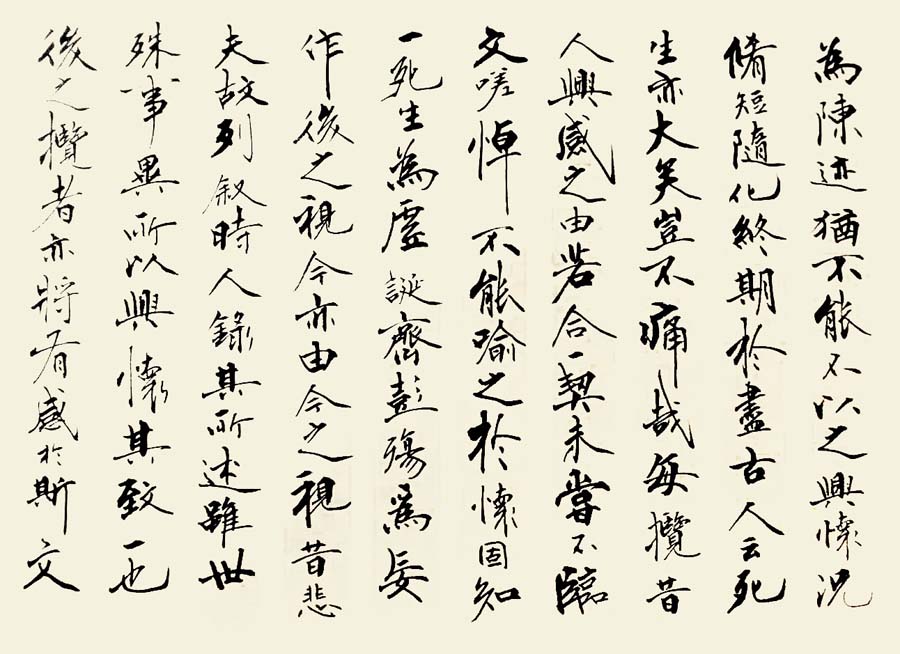 為陳迹猶不能不以之興懷況
脩短隨化終期於盡古人云死
生亦大矣豈不痛哉每攬昔
人興感之由若合一契未嘗不臨
文嗟悼不能喻之於懷固知
一死生為虛誕齊彭殤為妄
作後之視今亦由今之視昔悲
夫故列敘時人錄其所述雖世
殊事異所以興懷其致一也
後之攬者亦將有感於斯文